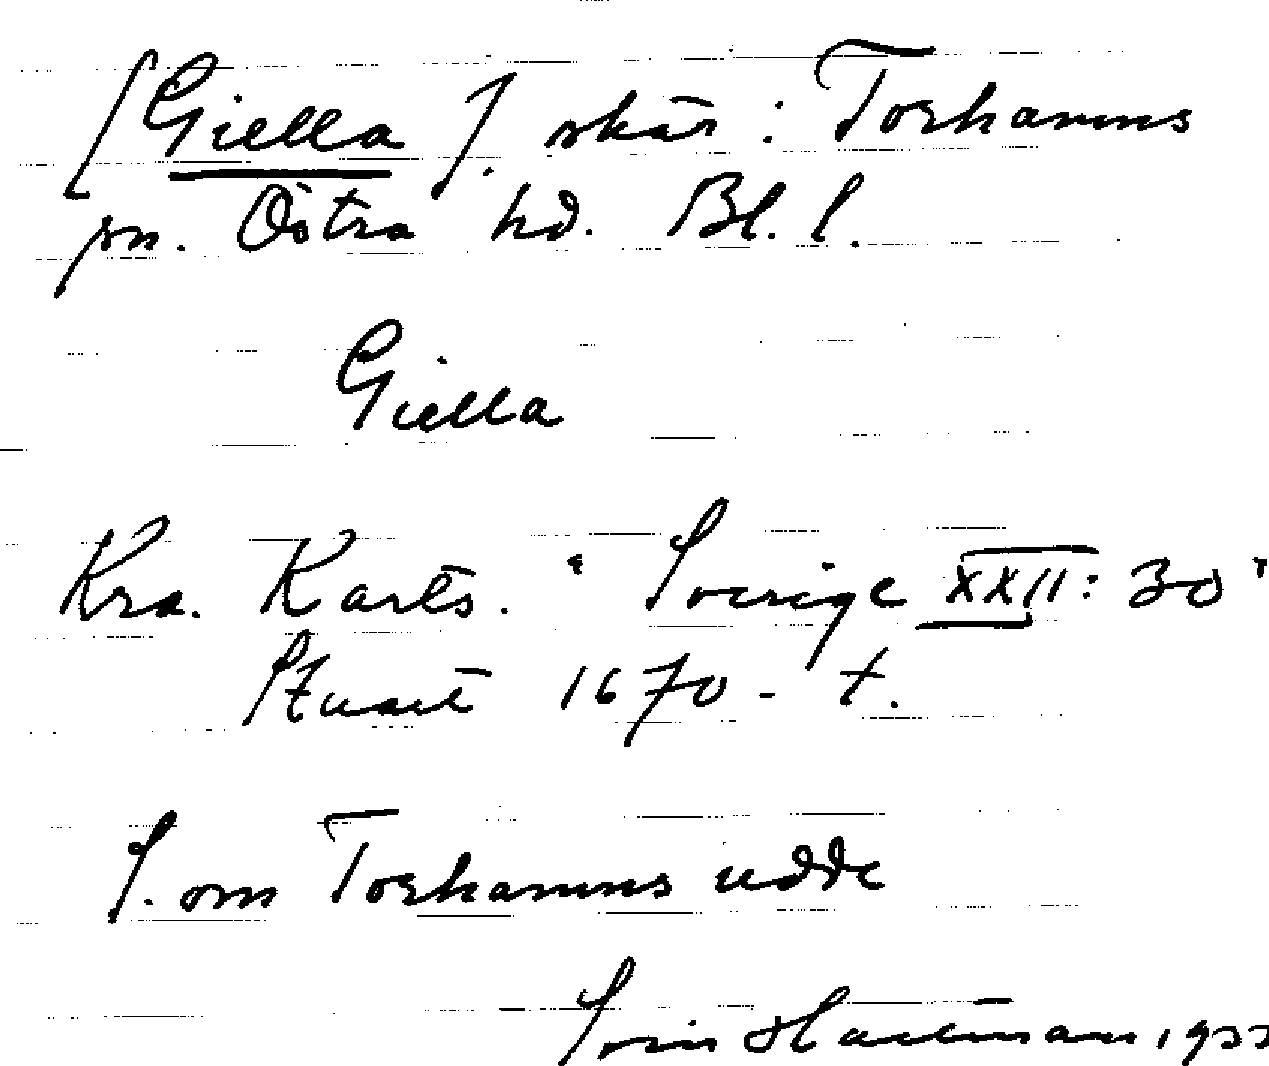 [Giella]. skär : Torhamns
sn. Östra hd. Bl. l.
Giella
Kra. Karts. "Sverige XXII: 30"
Stuart 1670-t.
S. om Torhamns udde
Sven Hartman 1933